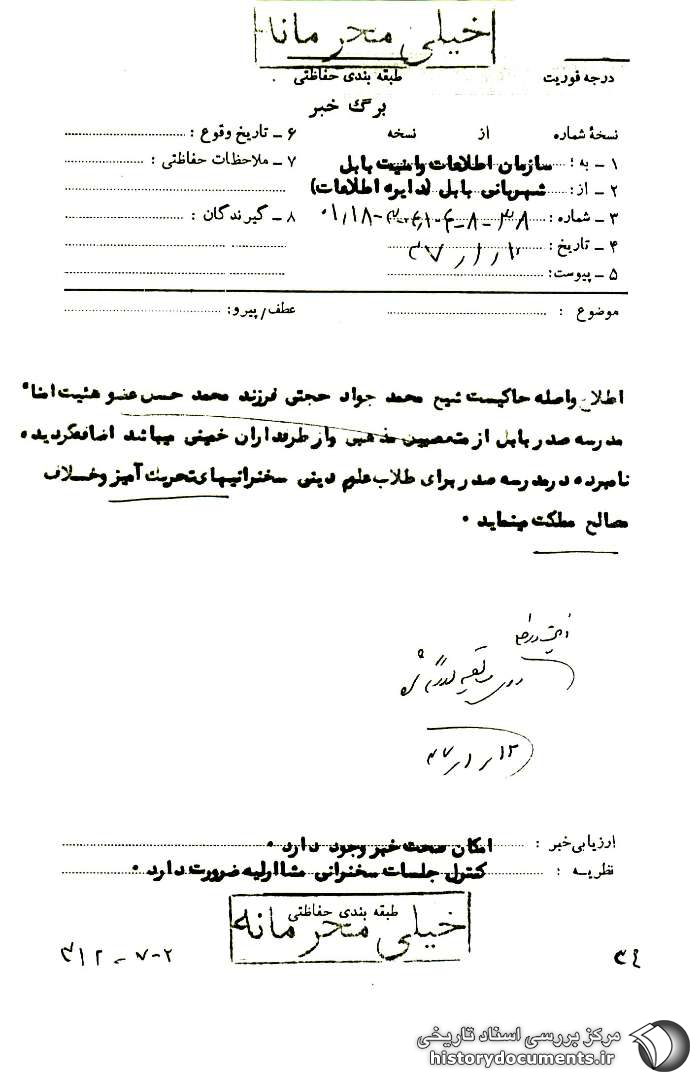 خیلی محرمانه
درجه فوریت
طبقه بندی حفاظتی
برگ خبر
نسخهٔ شماره از نسخه
۱ ـ به : سازمان اطلاعات وامنیت بابل
۲ ـ از : شهربانی بابل (دایره اطلاعات)
۳ ـ شماره :
۴ ـ تاریخ :
۵ ـ پیوست:
۶ ـ تاریخ وقوع :
۷ ـ ملاحظات حفاظتی :
۸ ـ گیرندگان :
موضوع :
عطف/پیرو:
اطلاع واصله حاکیست شیخ محمد جواد حجتی فرزند محمد حسن عضو هئیت امناء
مدرسه صدر بابل از متعصبین مذهبی واز طرفداران خمینی میباشد اضافه‌گردیده
نامبرده درمدرسه صدر برای طلاب علوم دینی سخنرانیهای تحریک آمیز وخلاف
مصالح مملکت مینماید ۰
۱۲/۱/۴۷
ارزیابی خبر : امکان صحت خبر وجود دارد ۰
نظریه : کنترل جلسات سخنرانی مشارالیه ضرورت دارد ۰
طبقه بندی حفاظتی
خیلی محرمانه
۳۴
۳۱۲-۷-۲
مرکز بررسی اسناد تاریخی
historydocuments.ir